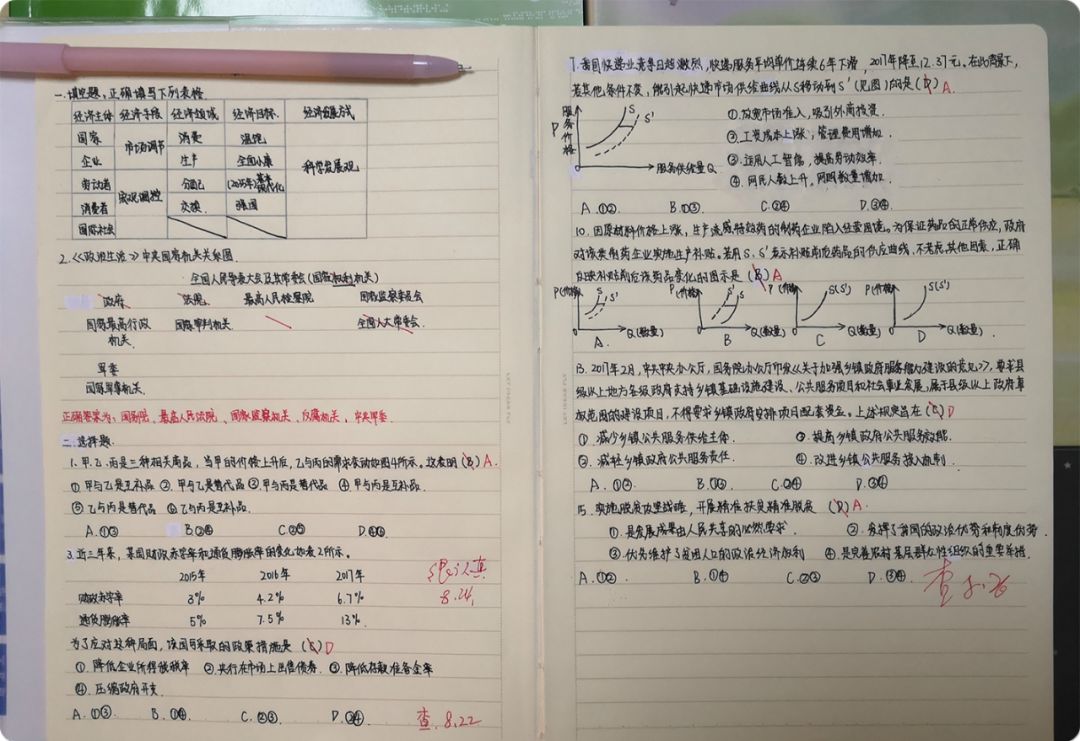 一.填空题，正确填写下列表格
经济主体 经济手段 经济领域 经济目标 经济发展方式
国家 市场调节 消费 温饱 科学发展观
企业 生产 全面小康
劳动者 宏观调控 分配 (2035年)基本现代化
消费者 交换 强国
国际社会
2.《政治生活》中央国家机关关系图
全国人民代表大会及其常委会(国家权利机关)
政府 法院 最高人民检察院 国家监察委员会
国家最高行政机关 国家审判机关 全国人大常委会
军委
国家军事机关
正确答案为：国务院、最高人民法院、国家监察机关、反腐机关、中央军委
二.选择题.
1.甲、乙、丙是三种相关商品，当甲的价格上升后，乙与丙的需求变动如图4所示。这表明(B)A.
①甲与乙是互补品 ②.甲与乙是替代品 ③.甲与丙是替代品 ④甲与丙是互补品.
⑤乙与丙是替代品 ⑥乙与丙是互补品.
A.①③ B.②④ C.②⑤ D.④⑥
3.近三年来，某国财政赤字率和通货膨胀率的变化如表2所示。
2015年 2016年 2017年
财政赤字率 3% 4.2% 6.7%
通货膨胀率 5% 7.5% 13%
8.24
为了应对这种局面，该国可采取的政策措施是(C)D
①.降低企业所得税税率 ②.央行在市场上出售债券. ③.降低存款准备金率
④.压缩政府开支.
A.①③. B.①④. C.②③. D.②④
查.8.22
7.我国快递业竞争日趋激烈，快递服务平均单价持续6年下滑，2017年降至12.37元。在此背景下，
若其他条件不变，能引起快递市场供给曲线从S移动到S'(见图)的是(D)A.
服务价格 P S S' 0 服务供给量Q
①.放宽市场准入，吸引外商投资.
②.工资成本上涨，管理费用增加.
③.运用人工智能，提高劳动效率.
④.网民人数上升，网购数量增加.
A.①②. B.①③. C.②④ D.③④
10.因原材料价格上涨，生产流感特效药的制药企业陷入经营困境。为保证药品的正常供应，政府
对该类制药企业实施生产补贴。若用S、S'表示补贴前后药品的供应曲线，不考虑其他因素，正确
反映补贴前后该药品变化的图示是(B)A
P(价格) S S' 0 Q(数量) A.
P(价格) S' S 0 Q(数量) B
P(价格) S(S') 0 Q(数量) C
P(价格) S(S') 0 Q(数量) D
13.2017年2月，中共中央办公厅，国务院办公厅印发《关于加强乡镇政府服务能力建设的意见》，要求县
级以上地方各级政府支持乡镇基础设施建设、公共服务项目和社会事业发展，属于县级以上政府事
权范围的建设项目，不得要求乡镇政府安排项目配套资金。上述规定旨在(C)D
①.减少乡镇公共服务供给主体. ②.提高乡镇政府公共服务效能.
③.减轻乡镇政府公共服务责任. ④.改进乡镇公共服务投入机制.
A.①②. B.①③. C.②④ D.③④
15.实施脱贫攻坚战略，开展精准扶贫精准脱贫(D)A
①.是发展成果由人民共享的必然要求 ②.发挥了我国的政治优势和制度优势.
③.优先维护了贫困人口的政治经济权利 ④.是完善农村基层群众性组织的重要举措.
A.①② B.①④ C.②③ D.③④.
查8.26